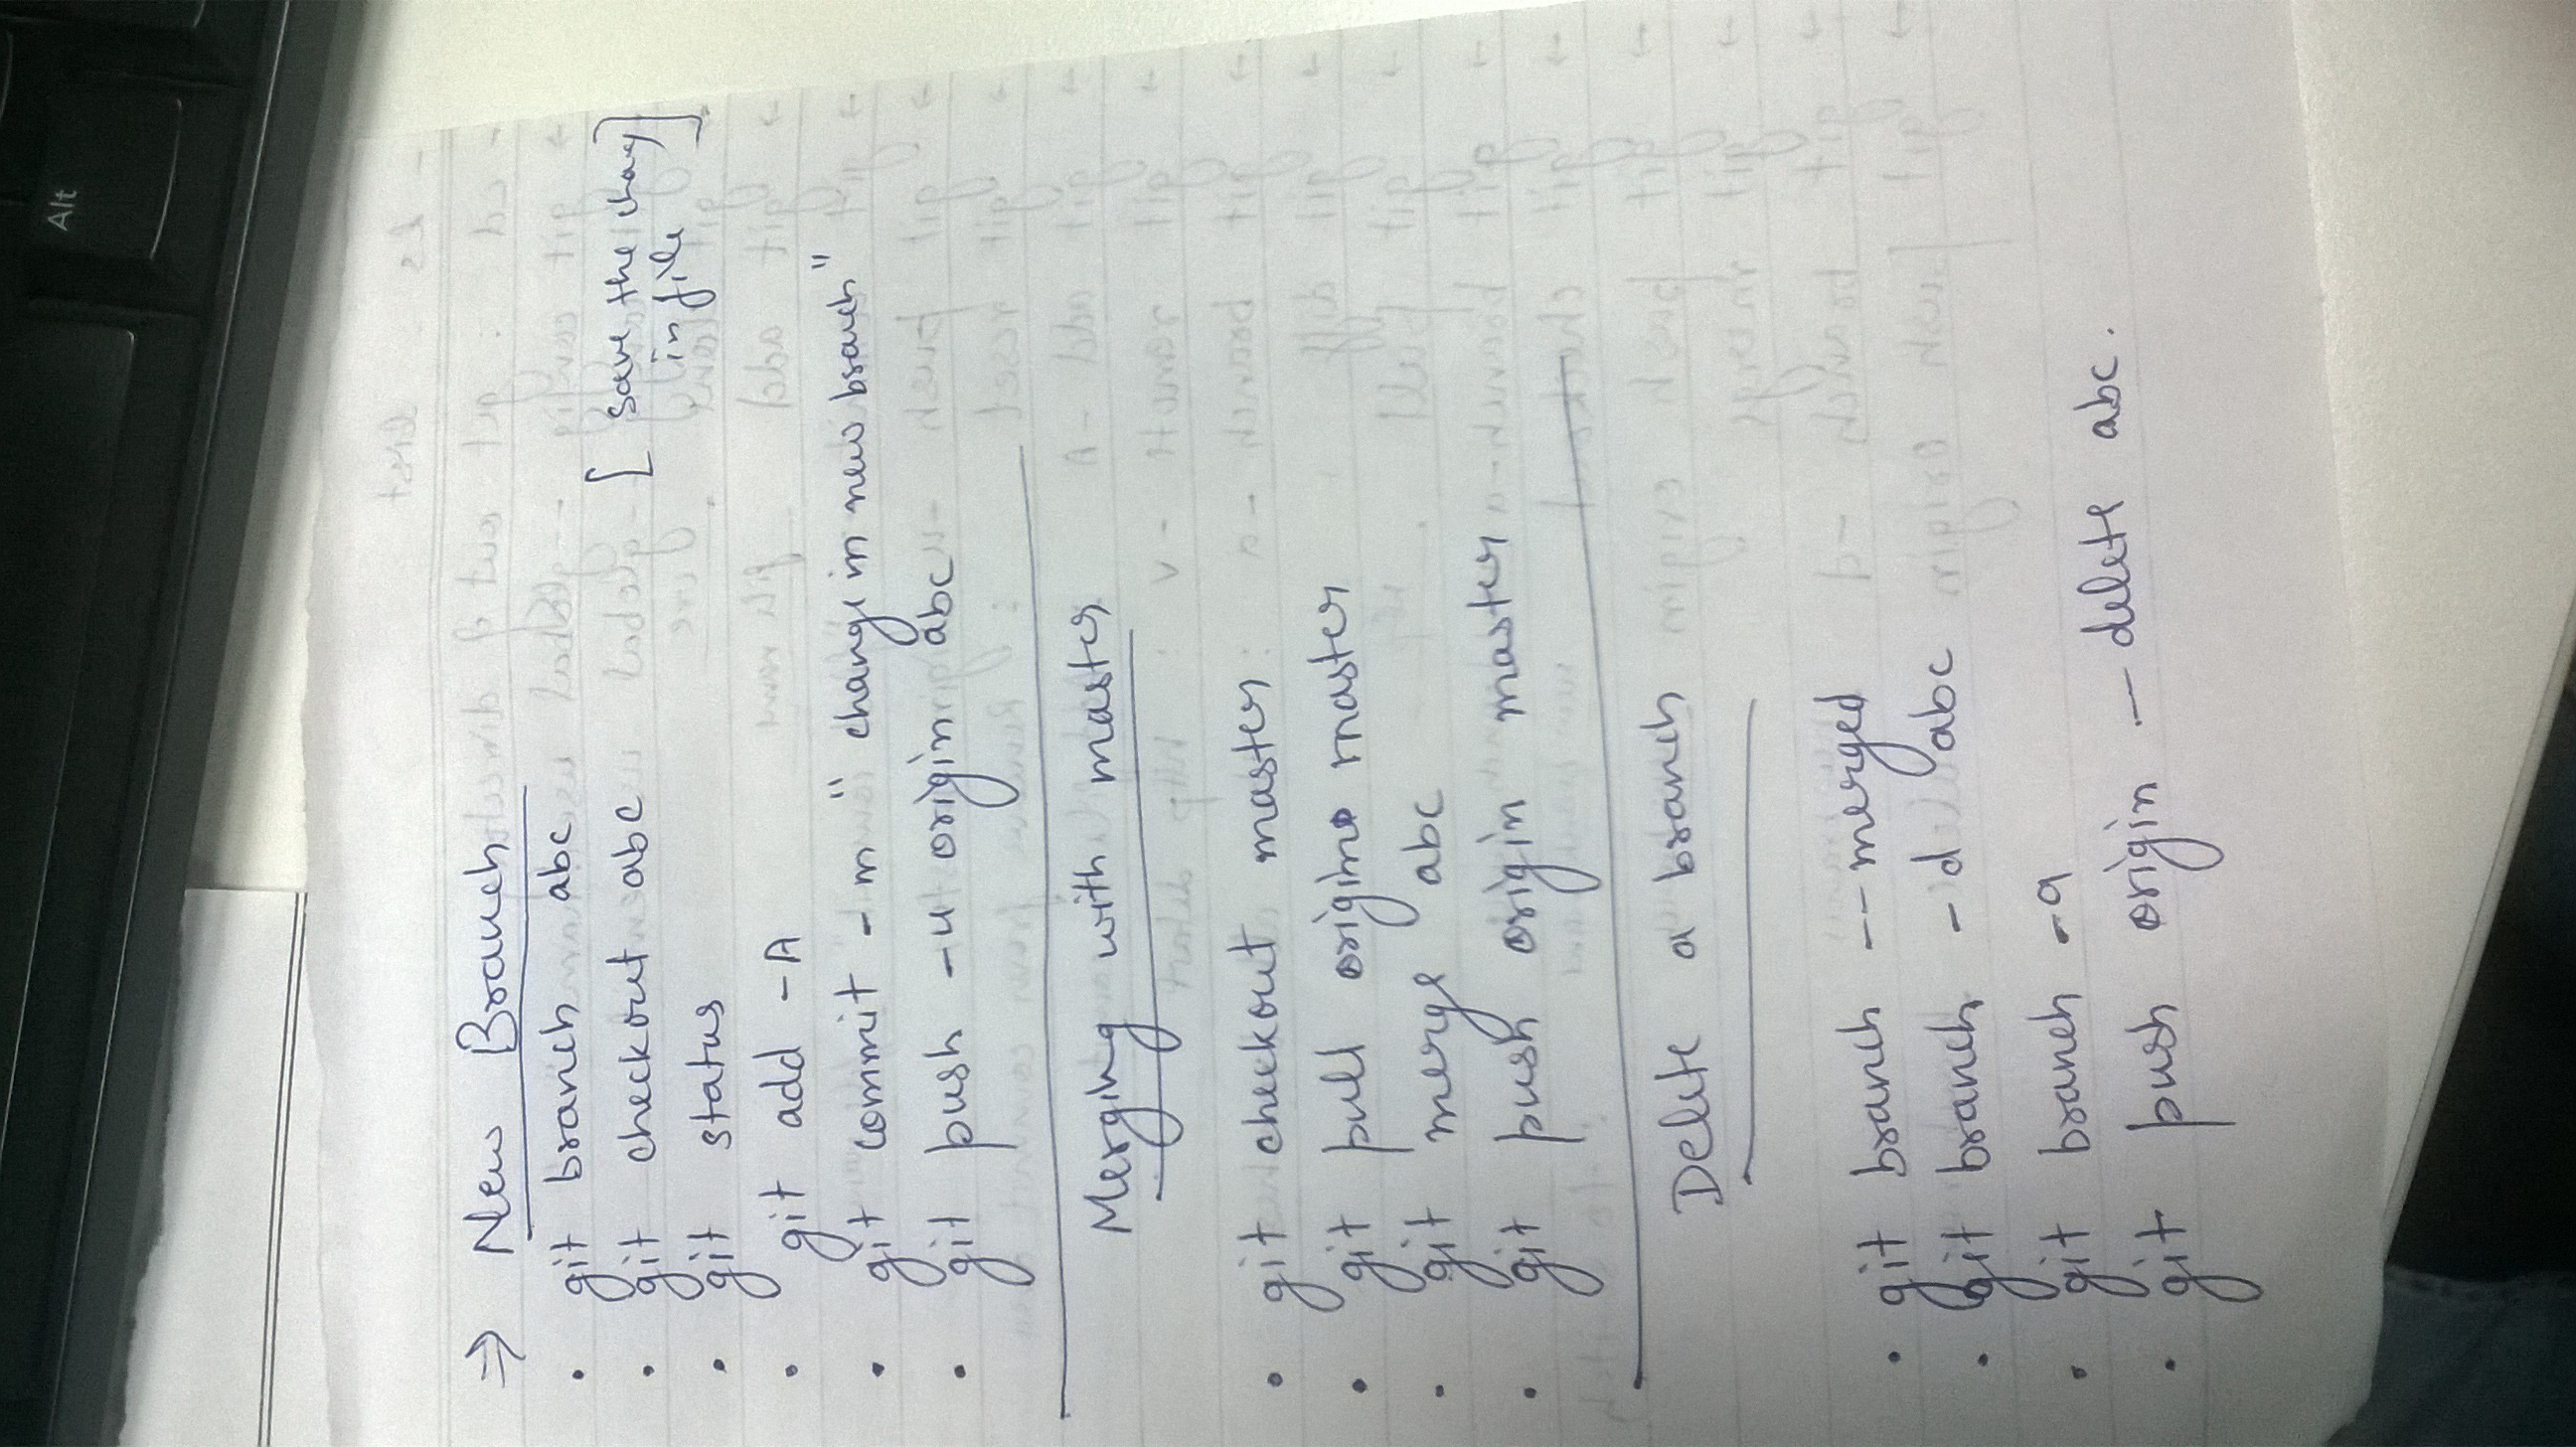 ⇒ New Branch
• git branch abc
• git checkout abc [ save the change
in file ]
• git status
• git add -A
• git commit -m "change in new branch"
• git push -u origin abc
Merging with master
• git checkout master
• git pull origin master
• git merge abc
• git push origin master
Delete a branch
• git branch --merged
• git branch -d abc
• git branch -a
• git push origin --delete abc.
Alt